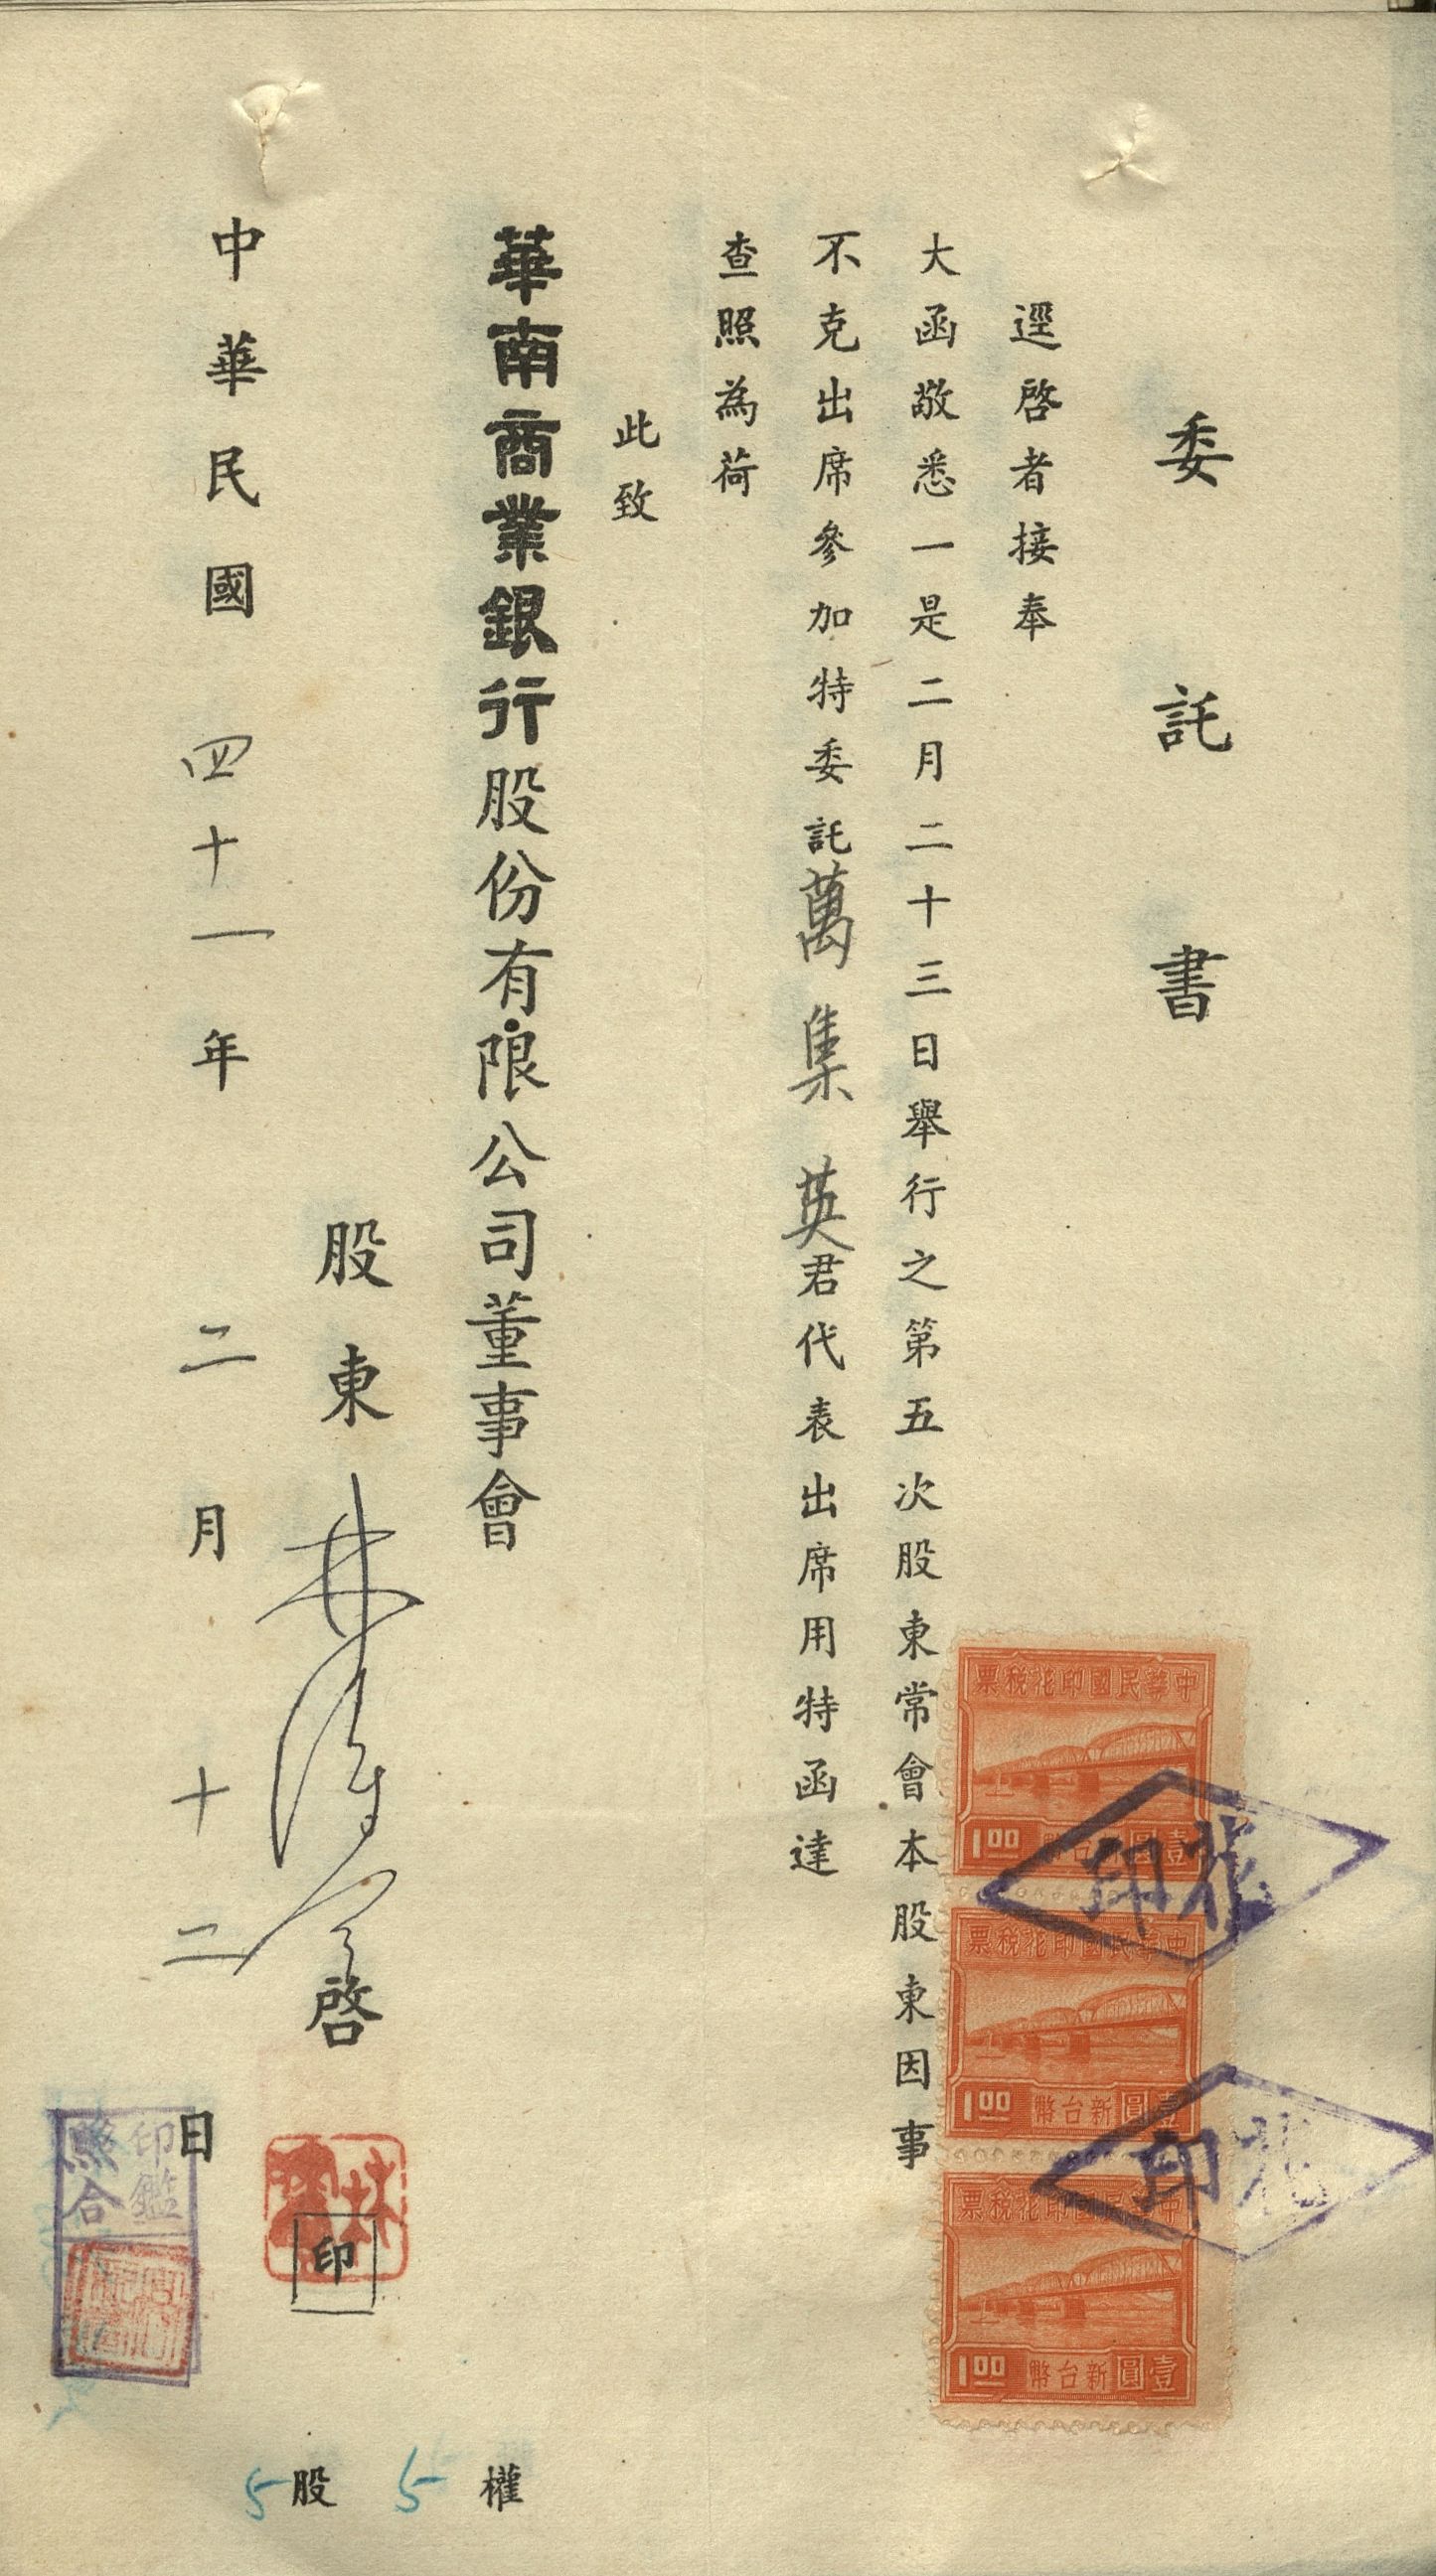 委託書
逕啓者接奉
大函敬悉一是二月二十三日舉行之第五次股東常會本股東因事
不克出席參加特委託萬集英君代表出席用特函達
查照為荷
此致
華南商業銀行股份有限公司董事會
股東林
啓
印
中華民國四十一年二月十二日
印鑑
照合
5股 5權
中華民國印花稅票
1.00 新台幣壹圓
中華民國印花稅票
1.00 新台幣壹圓
中華民國印花稅票
1.00 新台幣壹圓